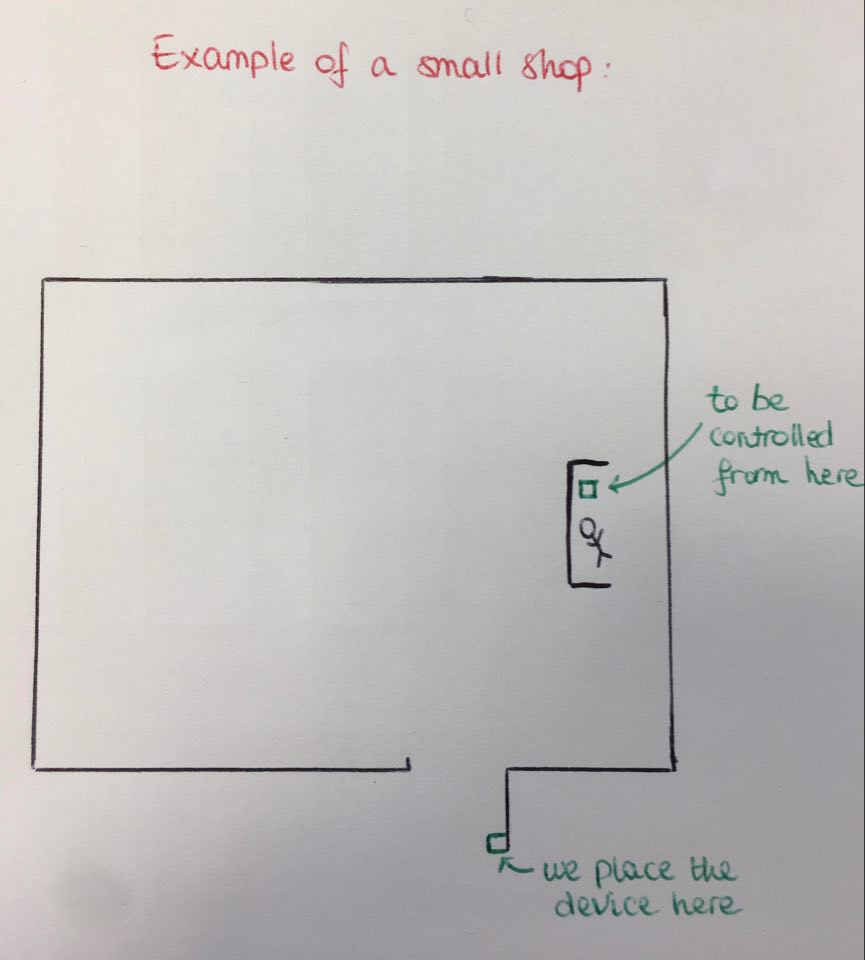 Example of a small shop:
to be
controlled
from here
we place the
device here